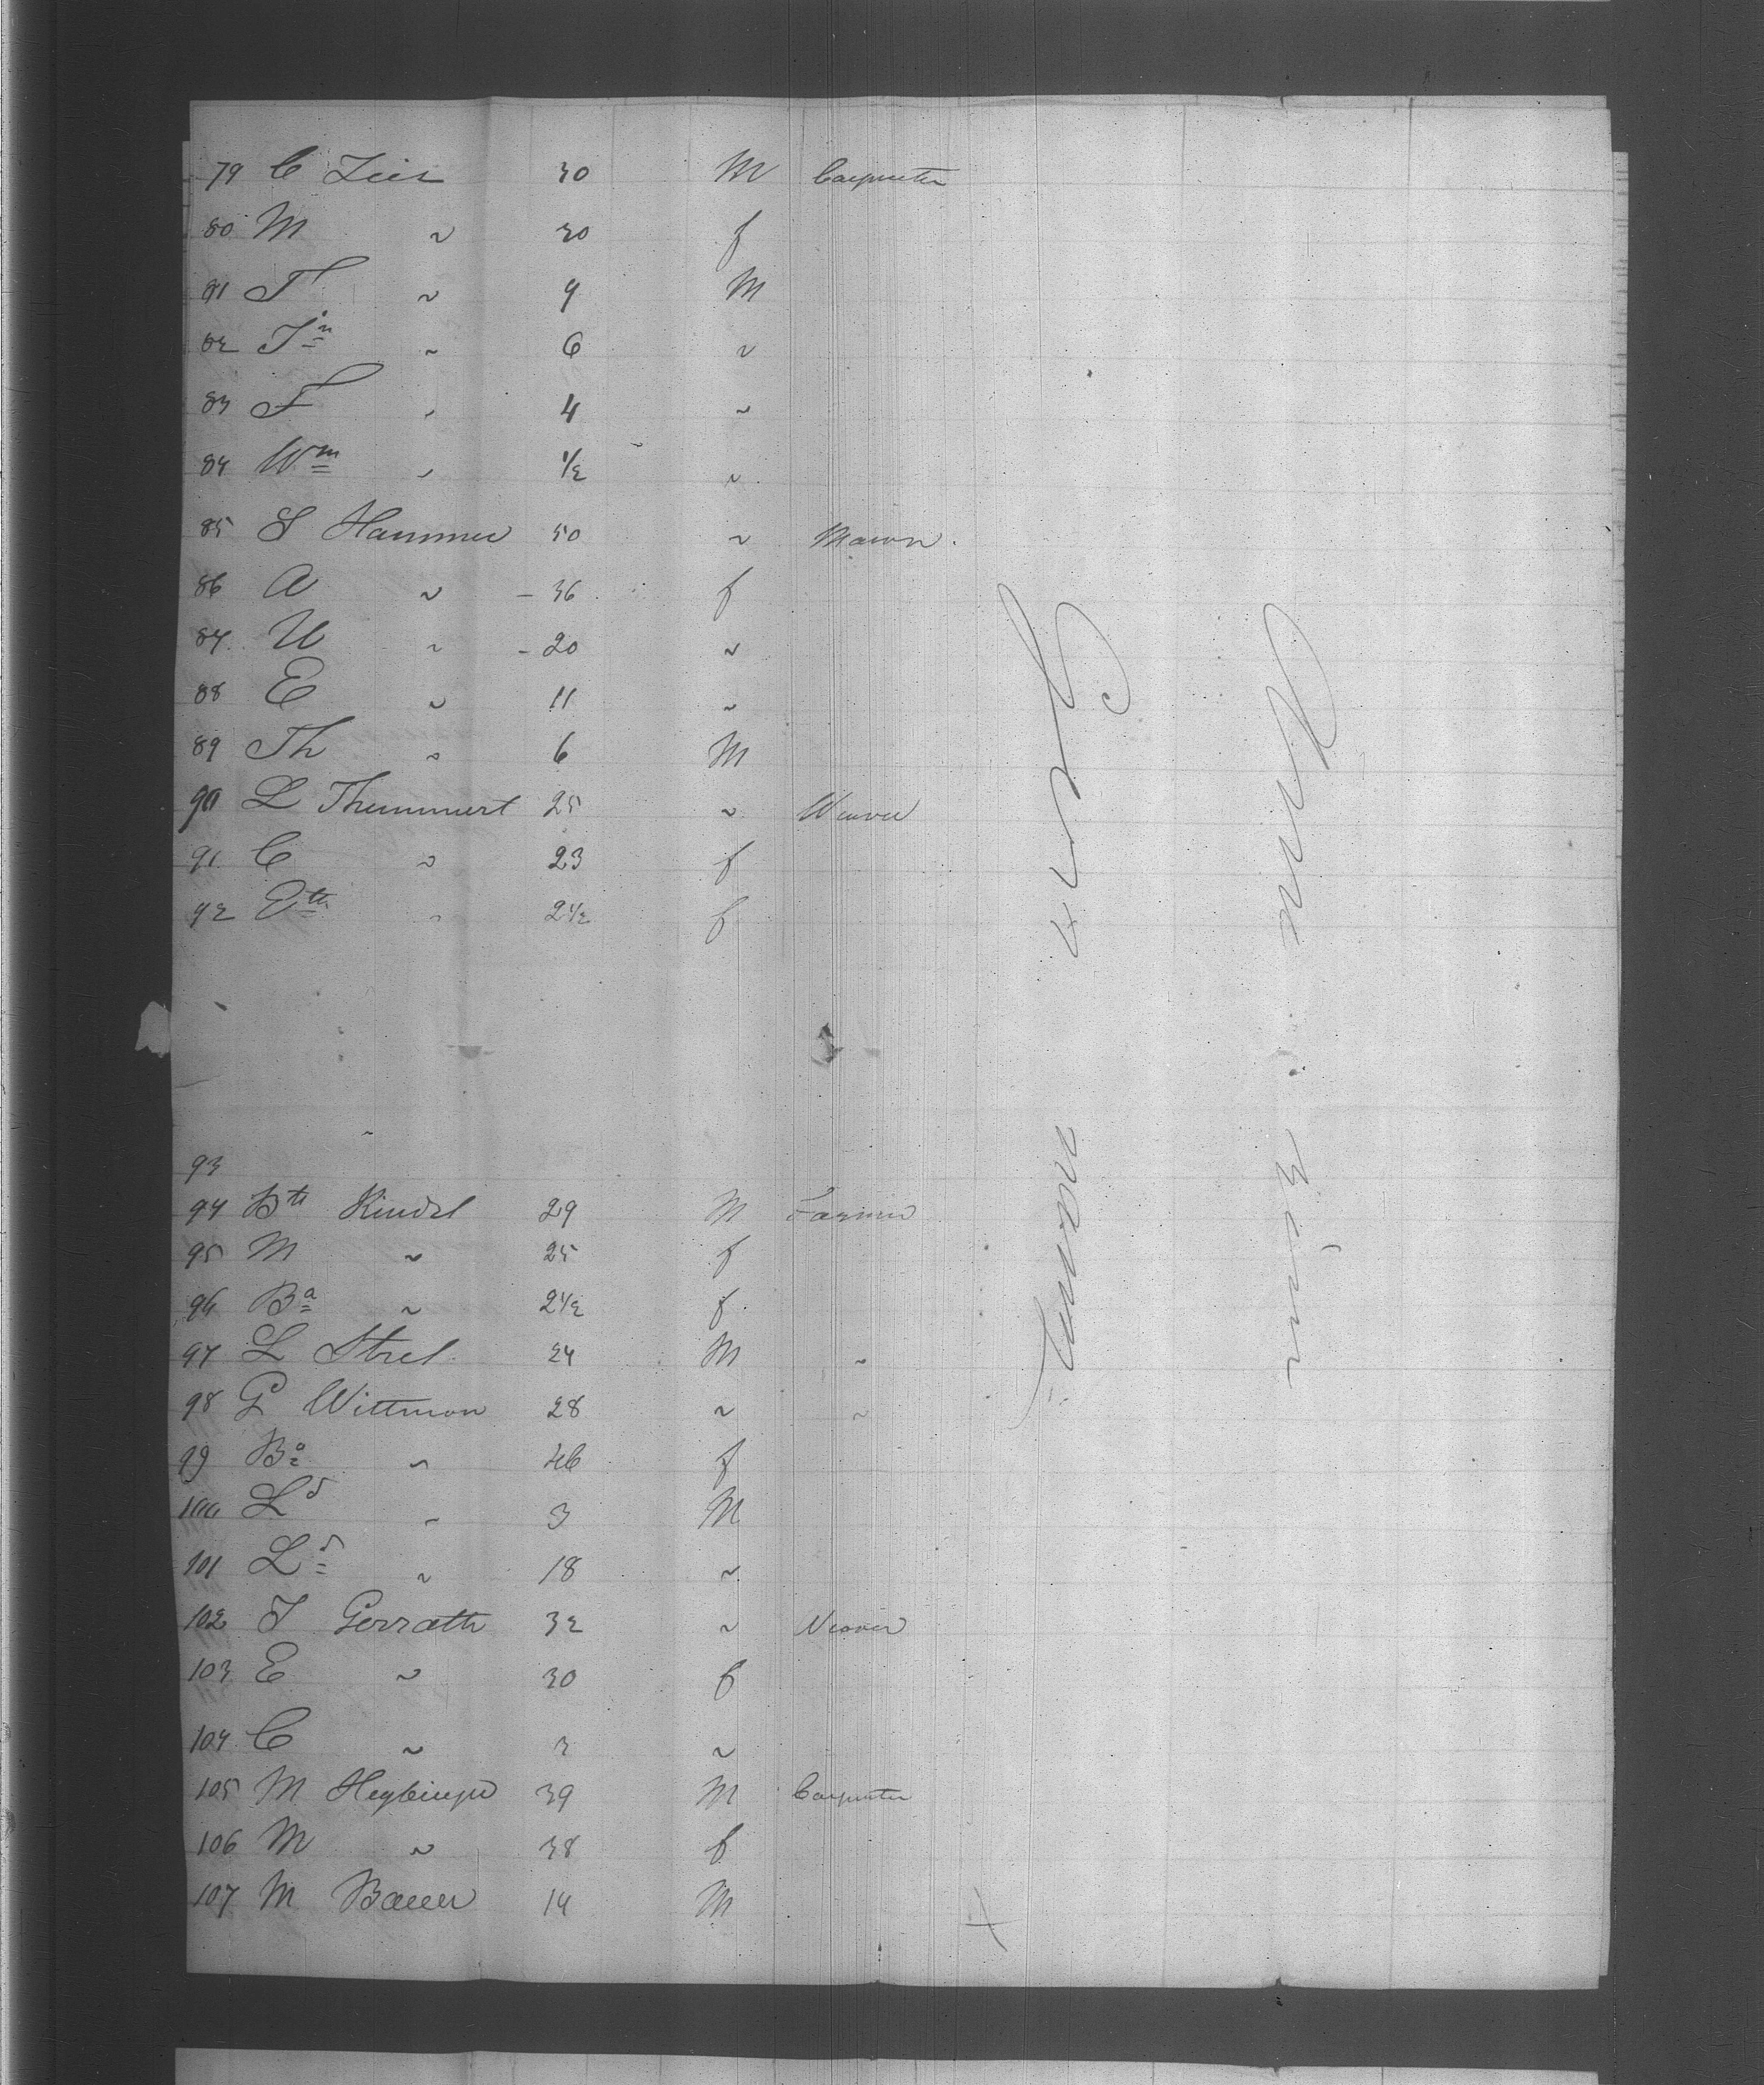 79 C Zeis 30 M Carpenter
80 M ~ 30 f
81 T ~ 9 M
82 Jn ~ 6 ~
83 F ~ 4 ~
84 Wm ~ 1/2 ~
85 S Hammer 50 ~ Mason.
86 A ~ - 36 f
87 U ~ - 20 ~
88 E ~ 11 ~
89 Th ~ 6 M
90 L Themmert 25 ~ Weaver
91 C ~ 23 f
92 Eth ~ 2 1/2 f
93
94 Bth Kindel 29 M Farmer
95 M ~ 25 f
96 Ba ~ 2 1/2 f
97 L Strel 24 M ~
98 G Wittmon 28 ~ ~
99 Ba ~ 26 f
100 Ld ~ 3 M
101 Ld ~ 18 ~
102 J Gerrath 32 ~ Weaver
103 E ~ 30 f
104 C ~ 3 ~
105 M 39 M Carpenter
106 M ~ 38 f
107 M Bauer 14 M